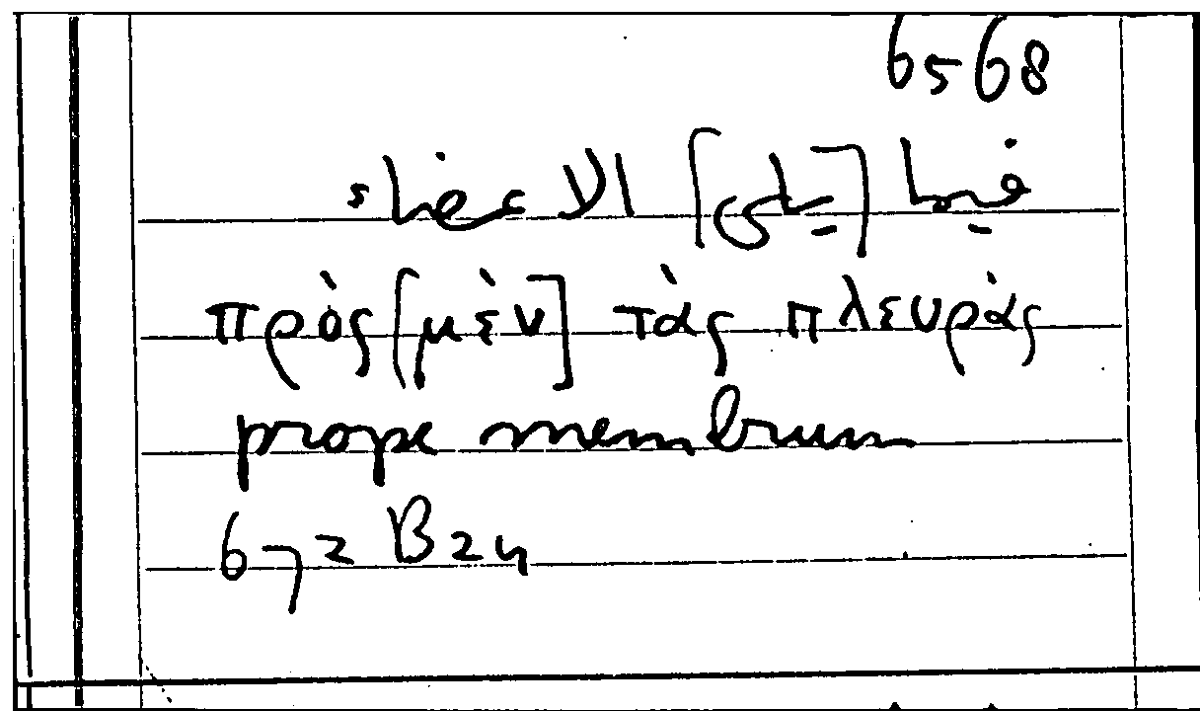 6568
فيما [يلى] الاعضاء
πρὸς [μὲν] τὰς πλευρὰς
prope membrum
672 B24